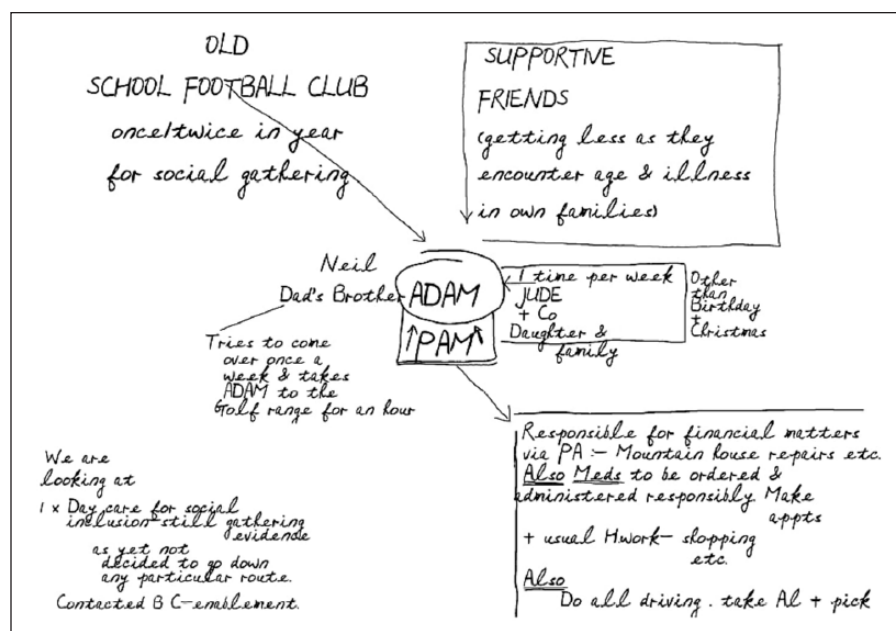 OLD
SCHOOL FOOTBALL CLUB
once/twice in year
for social gathering
SUPPORTIVE
FRIENDS
(getting less as they
encounter age & illness
in own families)
Neil
Dad's Brother
ADAM
PAM
1 time per week
JUDE
+ Co
Daughter &
family
Other
than
Birthday
+
Christmas
Tries to come
over once a
week & takes
ADAM to the
Golf range for an hour
We are
looking at
1 x Day care for social
inclusion-still gathering
evidence
as yet not
decided to go down
any particular route.
Contacted B C-enablement.
Responsible for financial matters
via PA :- Mountain house repairs etc.
Also Meds to be ordered &
administered responsibly Make
appts
+ usual H.work- shopping
etc.
Also
Do all driving. take Al + pick